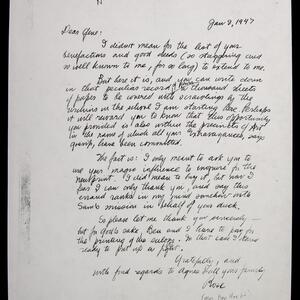 Jan 2, 1947
Dear Gene:
I didn't mean for the last of your
benefactions and good deeds (so staggering and
so well known to me, for so long) to extend to me.
But here it is, and you can write down
in that peculiar record thousand sheets
of paper to be covered with scrawlings by the
urchins in the school I am starting here. Perhaps
it will reward you to know that this opportunity
you provided is also within the precincts of Art
in the name of which all your extravagances, says
gossip, have been committed.
The fact is: I only meant to ask you to
use your magic influence to inquire for the
newsprint. I did mean to buy it, but now I
fear I can only thank you, and say this
errand ranks in my mind somehow with
mission in behalf of your duck.
So please let me thank you sincerely —
but for God's sake, Ben and I have to pay for
the printing of the
ready to put up a fight.
Gratefully, and
with fond regards to Agnes & all your family